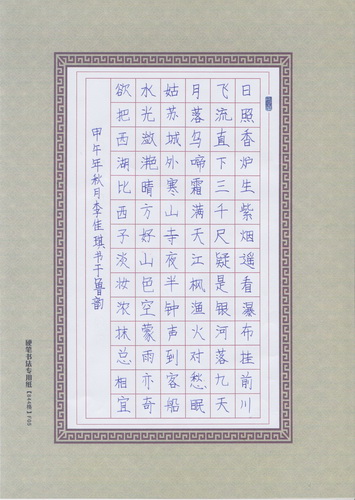 日照香炉生紫烟遥看瀑布挂前川
飞流直下三千尺疑是银河落九天
月落乌啼霜满天江枫渔火对愁眠
姑苏城外寒山寺夜半钟声到客船
水光潋滟晴方好山色空蒙雨亦奇
欲把西湖比西子淡妆浓抹总相宜
甲午年秋月李佳琪书于鲁韵
硬笔书法专用纸